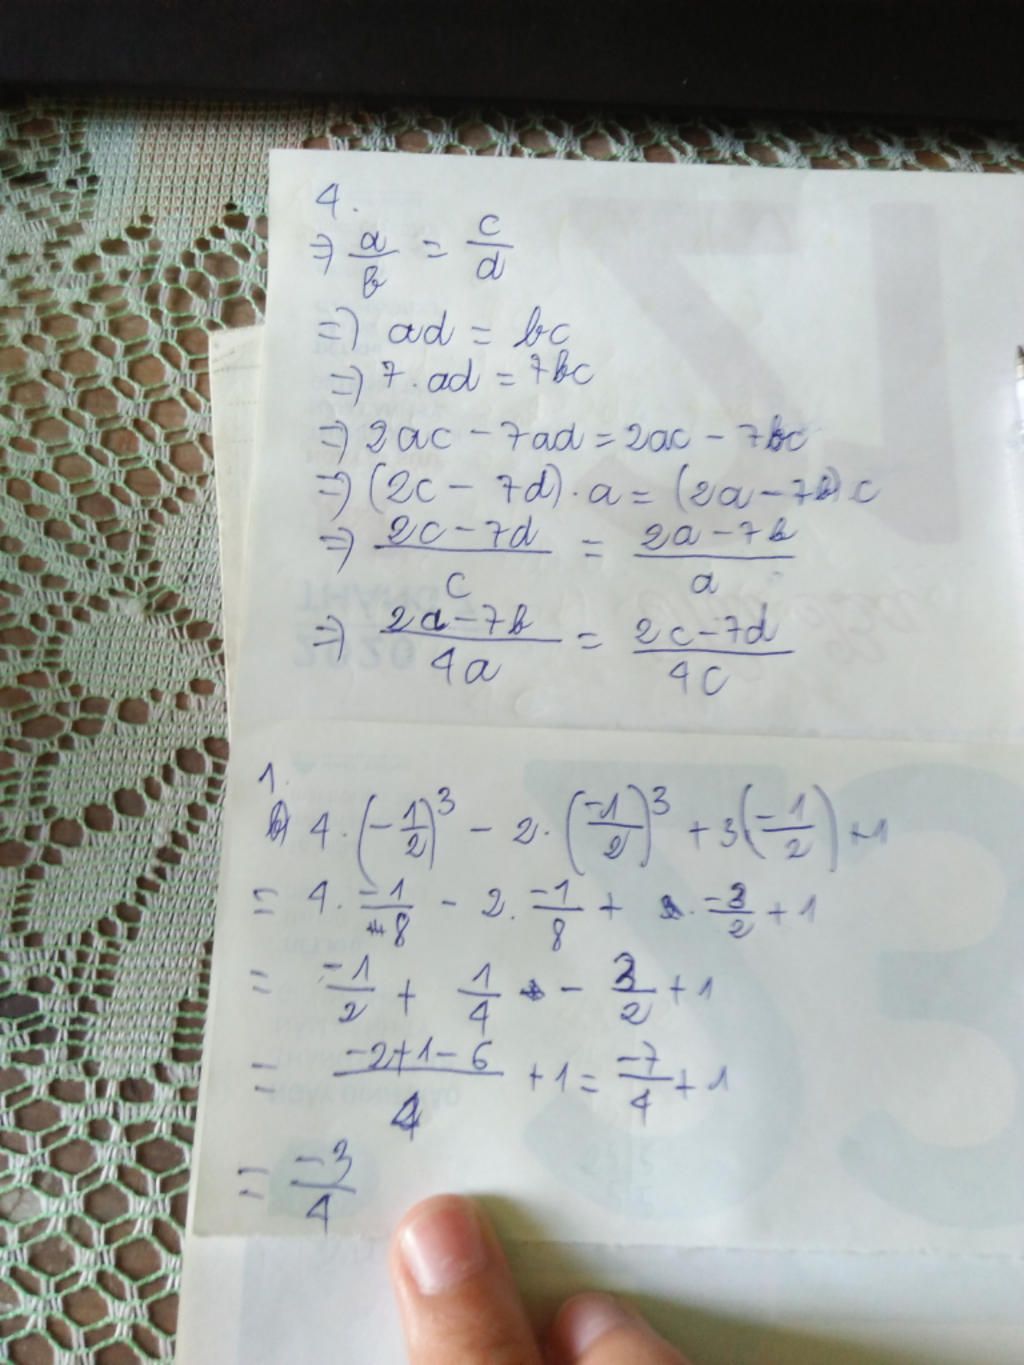 4.
=> a/b = c/d
=> ad = bc
=> 7.ad = 7bc
=> 2ac - 7ad = 2ac - 7bc
=> (2c - 7d).a = (2a - 7b)c
=> (2c - 7d)/c = (2a - 7b)/a
=> (2a - 7b)/4a = (2c - 7d)/4c
1.
b) 4.(-1/2)^3 - 2.(-1/2)^3 + 3(-1/2) + 1
= 4.(-1/8) - 2.(-1/8) + (-3/2) + 1
= -1/2 + 1/4 - 3/2 + 1
= (-2+1-6)/4 + 1 = -7/4 + 1
= -3/4